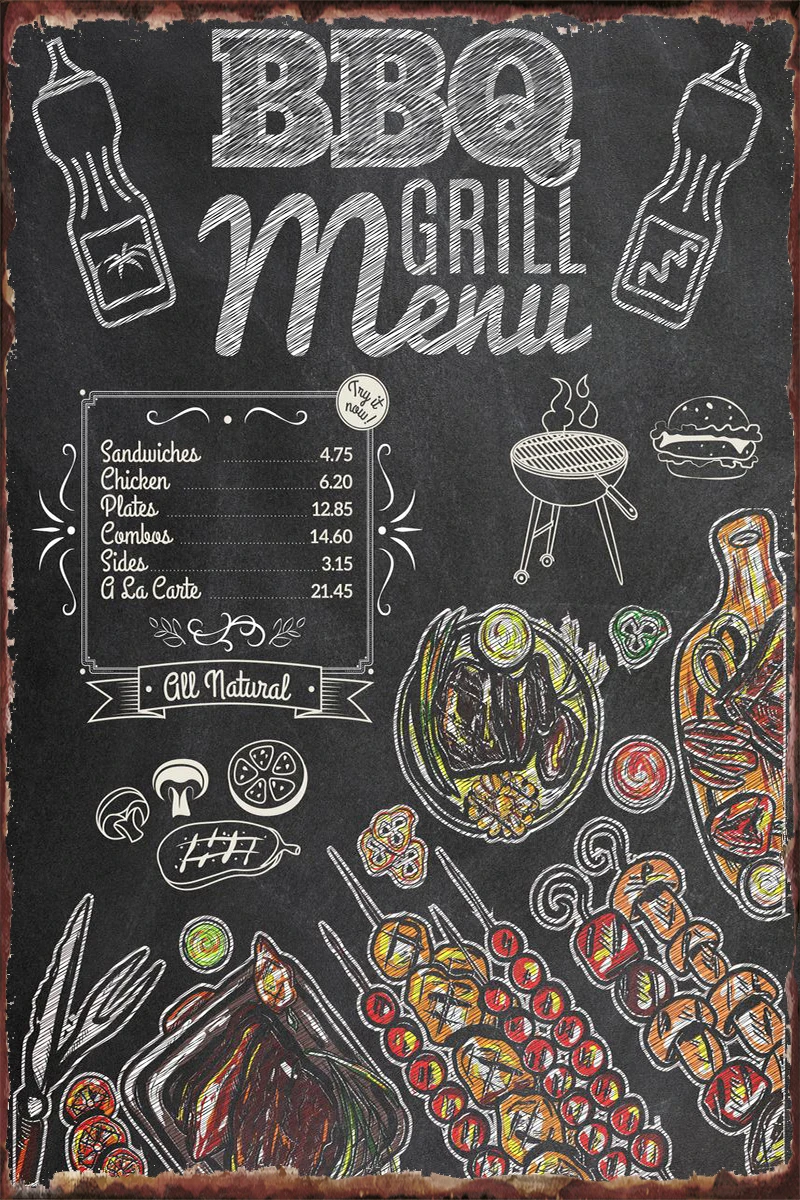 BBQ
GRILL
Menu
Try it
now!
Sandwiches 4.75
Chicken 6.20
Plates 12.85
Combos 14.60
Sides 3.15
A La Carte 21.45
All Natural